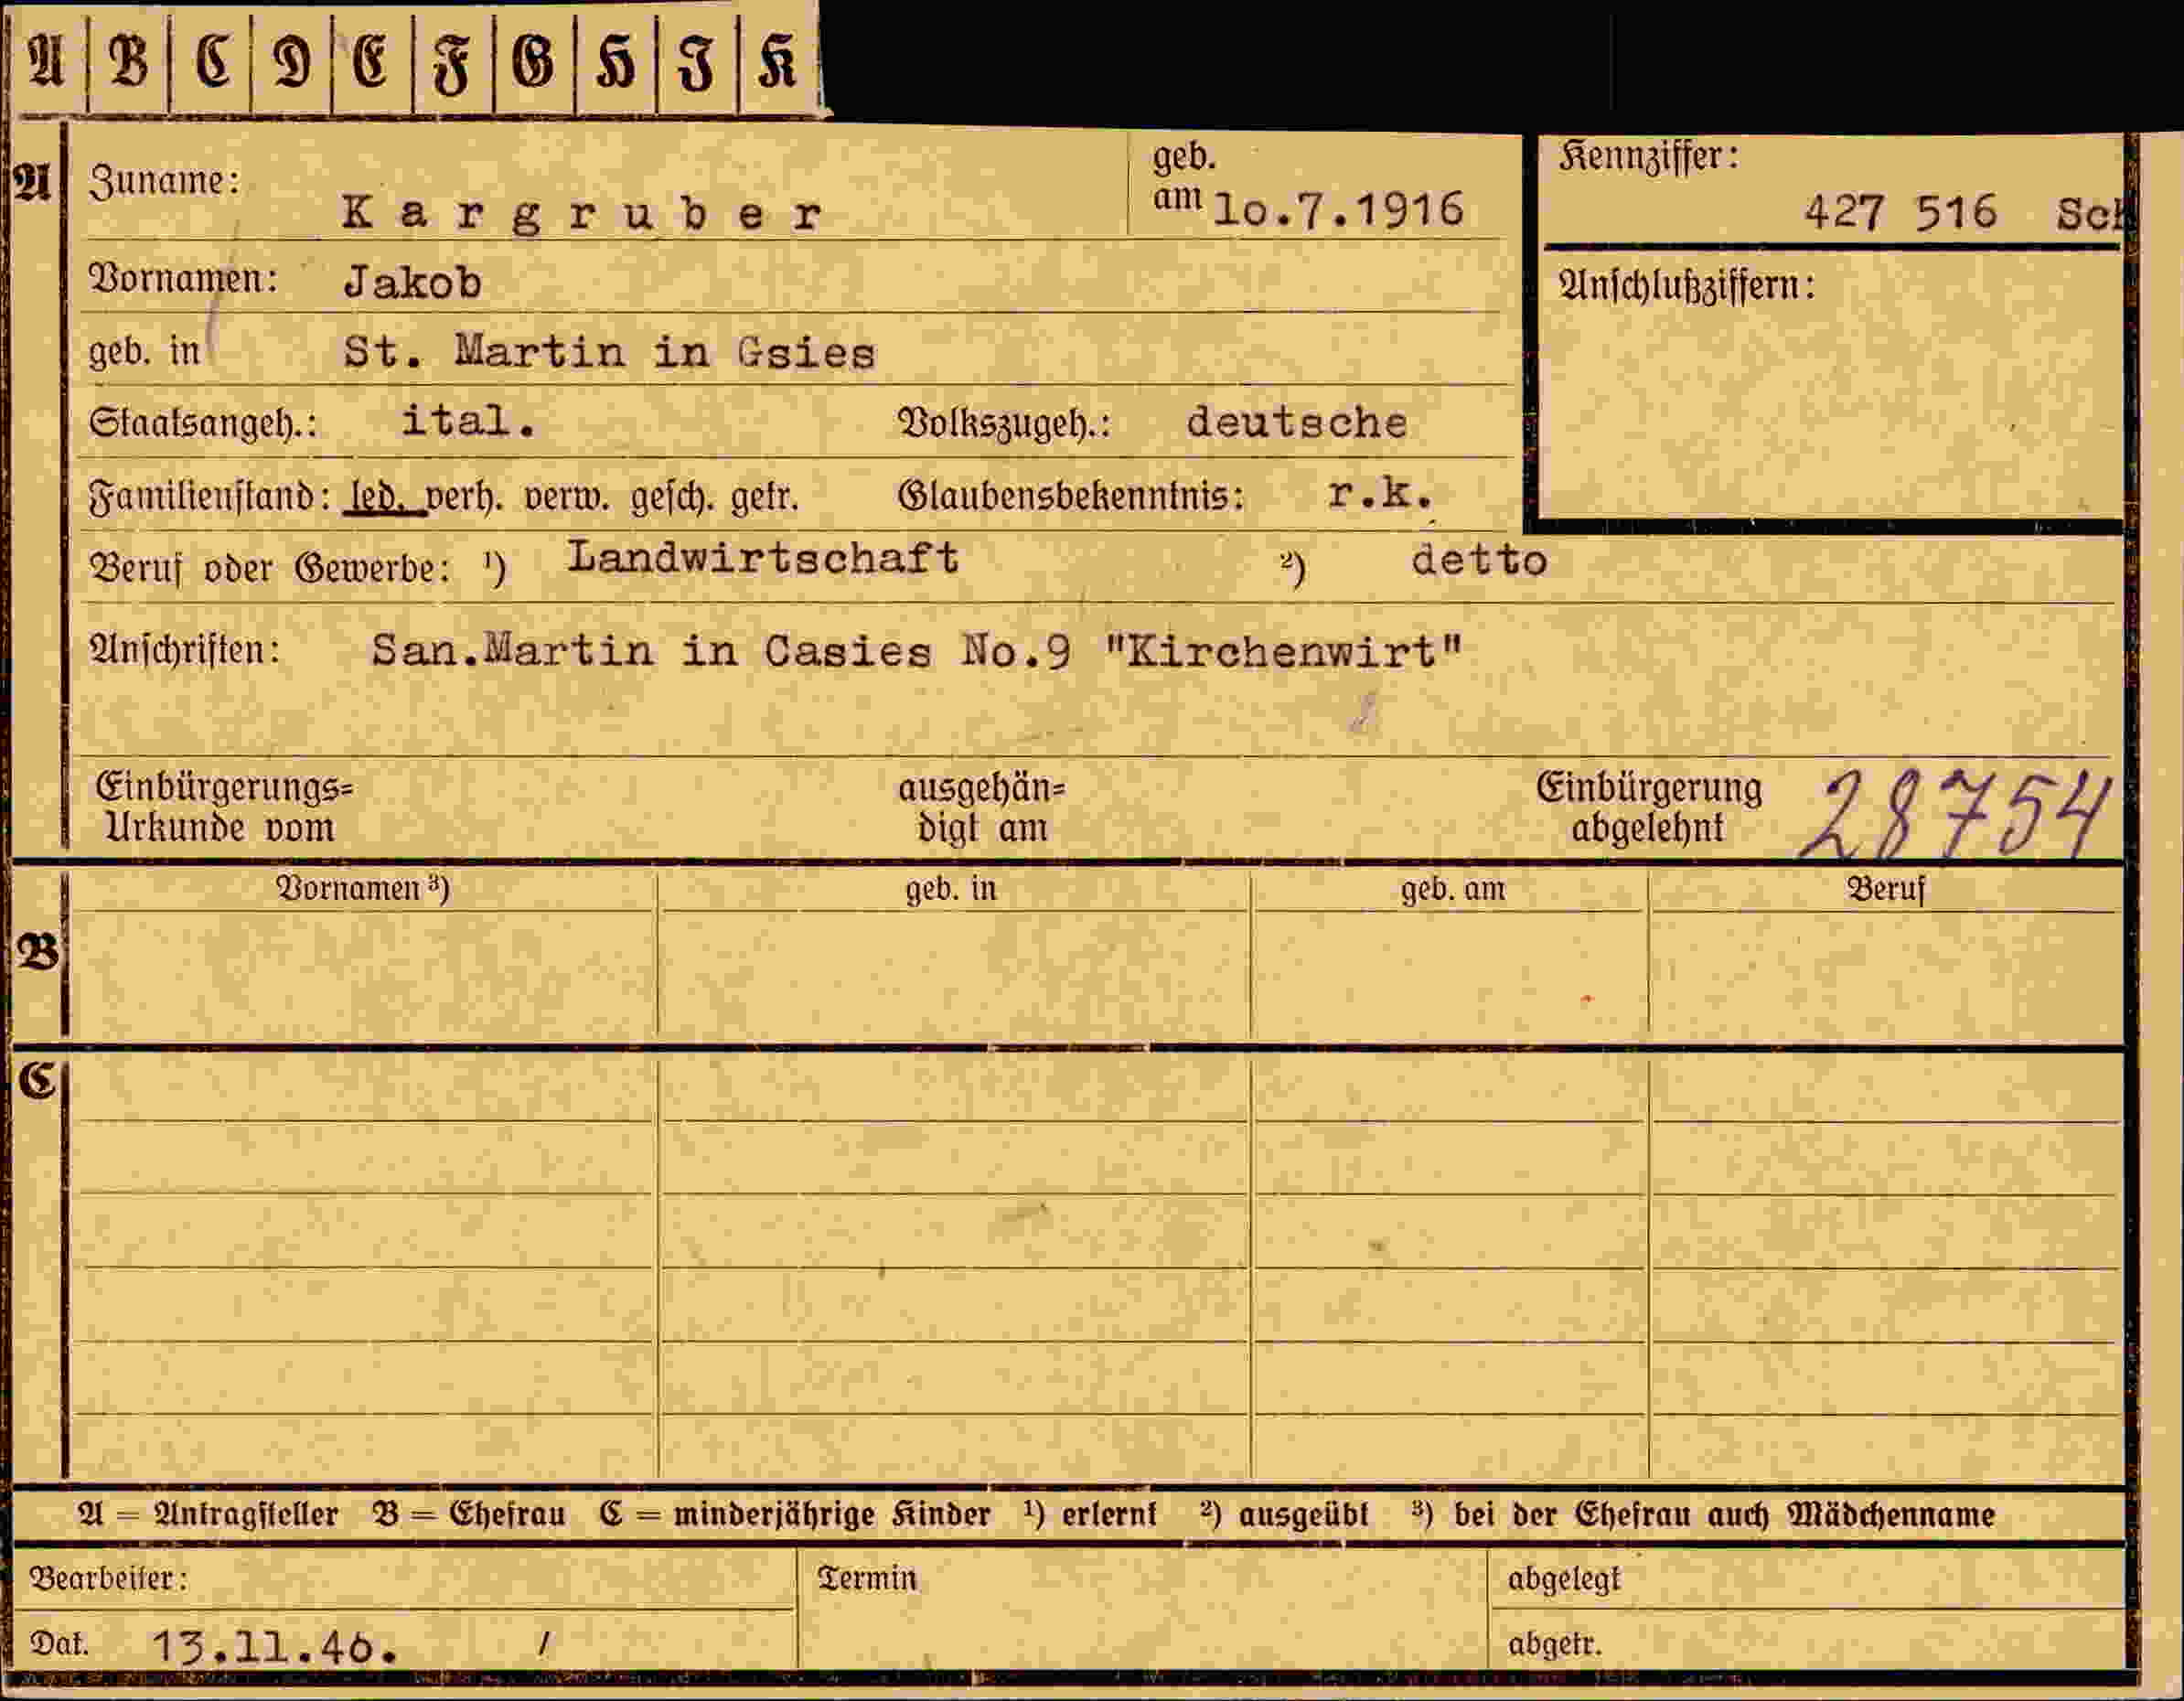 A B C D E F G H I K
A Zuname: Kargruber geb. am 10.7.1916 Kennziffer: 427 516 Sch
Vornamen: Jakob Anschlußziffern:
geb. in St. Martin in Gsies
Staatsangeh.: ital. Volkszugeh.: deutsche
Familienstand: led. verh. verw. gesch. getr. Glaubensbekenntnis: r.k.
Beruf oder Gewerbe: ¹) Landwirtschaft ²) detto
Anschriften: San.Martin in Casies No.9 "Kirchenwirt"
Einbürgerungs= ausgehän= Einbürgerung 28754
Urkunde vom digt am abgelehnt
Vornamen ³) geb. in geb. am Beruf
B
C
A = Antragsteller B = Ehefrau C = minderjährige Kinder ¹) erlernt ²) ausgeübt ³) bei der Ehefrau auch Mädchenname
Bearbeiter: Termin abgelegt
Dat. 13.11.40. / abgetr.